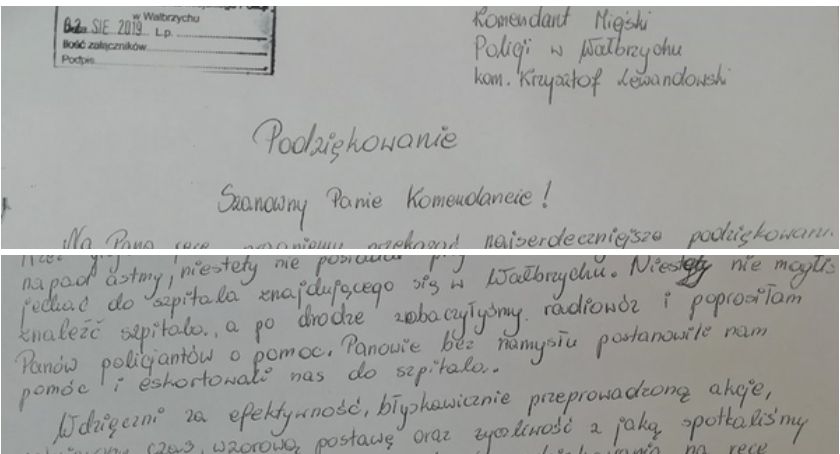 w Wałbrzychu
02. SIE 2019 L.p.
Ilość załączników
Podpis
Komendant Miejski
Policji w Wałbrzychu
kom. Krzysztof Lewandowski
Podziękowanie
Szanowny Panie Komendancie!
Na Pana ręce pragniemy przekazać najserdeczniejsze podziękowani
napad astmy, niestety nie
jechać do szpitala znajdującego się w Wałbrzychu. Niestety nie mogliś
znaleźć szpitala, a po drodze zobaczyłyśmy radiowóz i poprosiłam
Panów policjantów o pomoc. Panowie bez namysłu postanowili nam
pomóc i eskortowali nas do szpitala.
Wdzięczni za efektywność, błyskawicznie przeprowadzoną akcję,
czas, wzorową postawę oraz życzliwość z jaką spotkaliśmy
na ręce